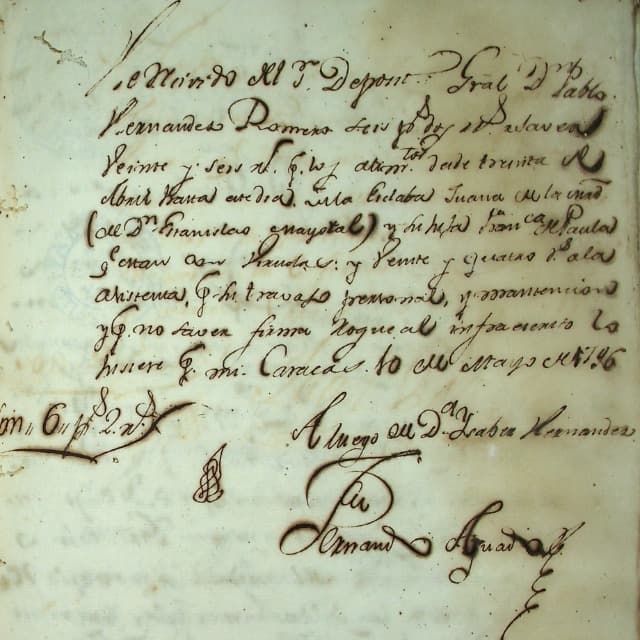 He Recivido del Sr. Deposit.º Gral. Dn. Pablo
Hernandez Romero seis ps. dos rs. a saver
Veinte y seis rs. p. los alim.tos desde treinta de
Abril hasta este dia, a la Esclaba Juana de la
(de Dn. Estanislao Mayoral) y su hija Fran.ca de Paula
q.e estan con Viruelas: y Veinte y quatro rs. a la
asistenta, p. su travajo personal, y mantencion
y p. no saver firmar rogue al infraescrito lo
hisiere p. mi. Caracas 10 de Mayo de 1796
Son 6 ps. 2 rs.
A ruego de D.a Ysabel Hernandez
Fernando Aguado